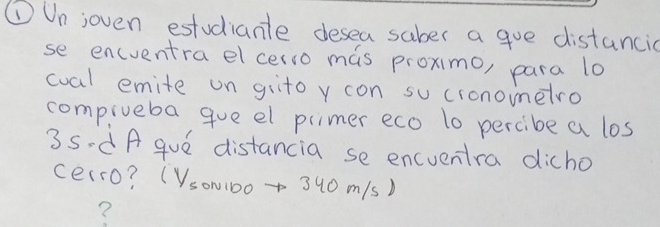 ① Un joven estudiante desea saber a que distancia
se encuentra el cerro más proximo, para lo
cual emite un grito y con su cronometro
comprueba que el primer eco lo percibe a los
3s. ¿A qué distancia se encuentra dicho
cerro? (V SONIDO → 340 m/s)
?